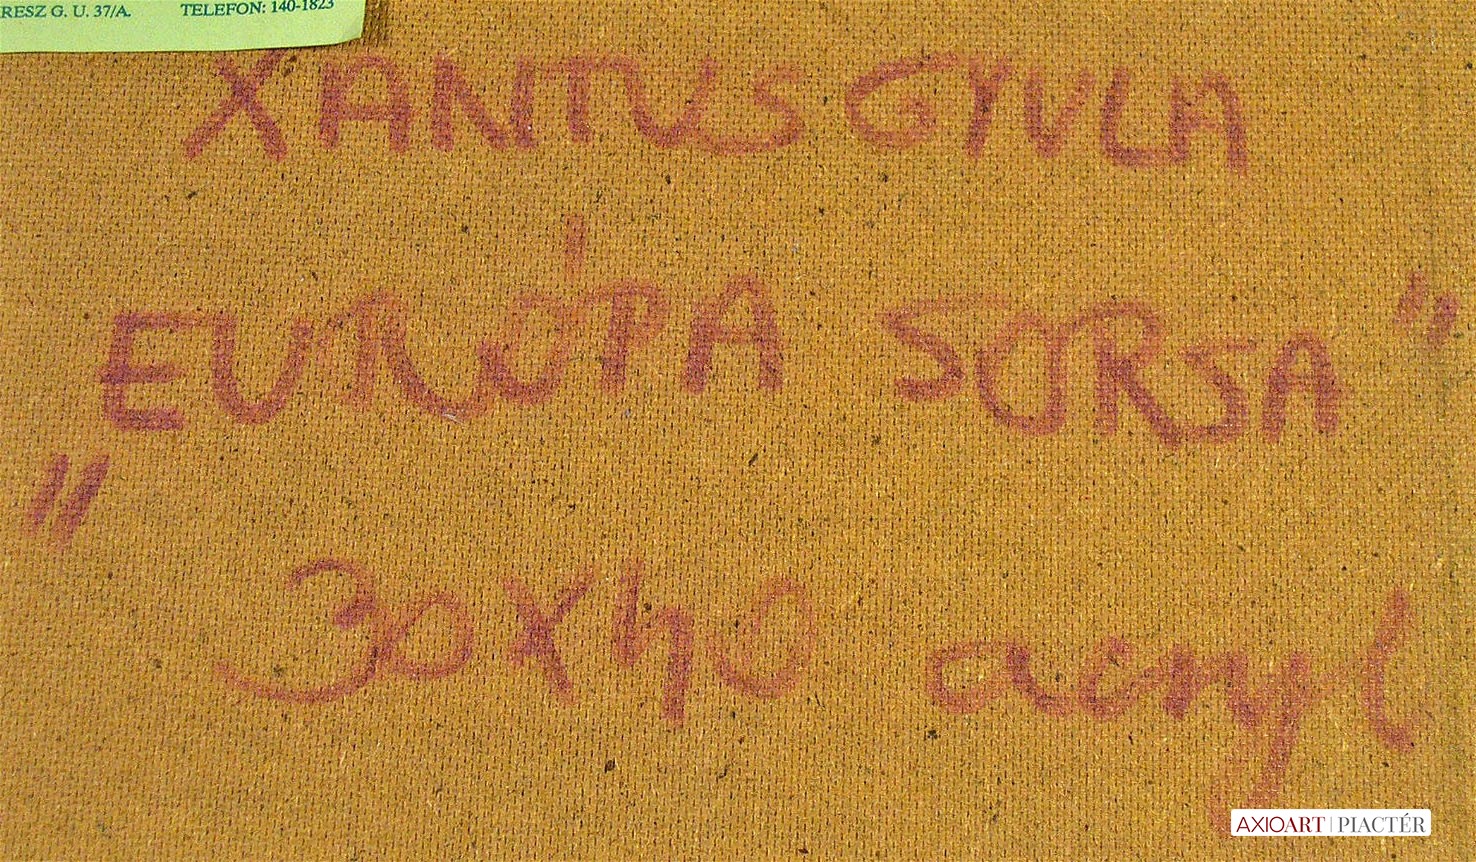 RESZ G. U. 37/A. TELEFON: 140-1823
XANTUS GYULA
EURÓPA SORSA"
"
30x40 acryl
AXIOART | PIACTÉR